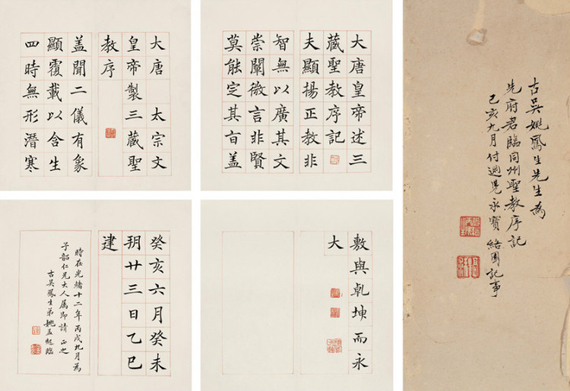 大唐 太宗文
皇帝製三藏聖
教序
蓋聞二儀有象
顯覆載以含生
四時無形潛寒
大唐皇帝述三
藏聖教序記
夫顯揚正教非
智無以廣其文
崇闡微言非賢
莫能定其旨蓋
癸亥六月癸未
朔廿三日乙巳
建
時在光緒十二年丙戌九月為
子韶仁兄大人屬即請 正之
古吳鳳生弟姚孟起臨
敷與乾坤而永
大
古吳姚鳳生先生為
先府君臨同州聖教序記
己亥九月付 兒永寶 園記事